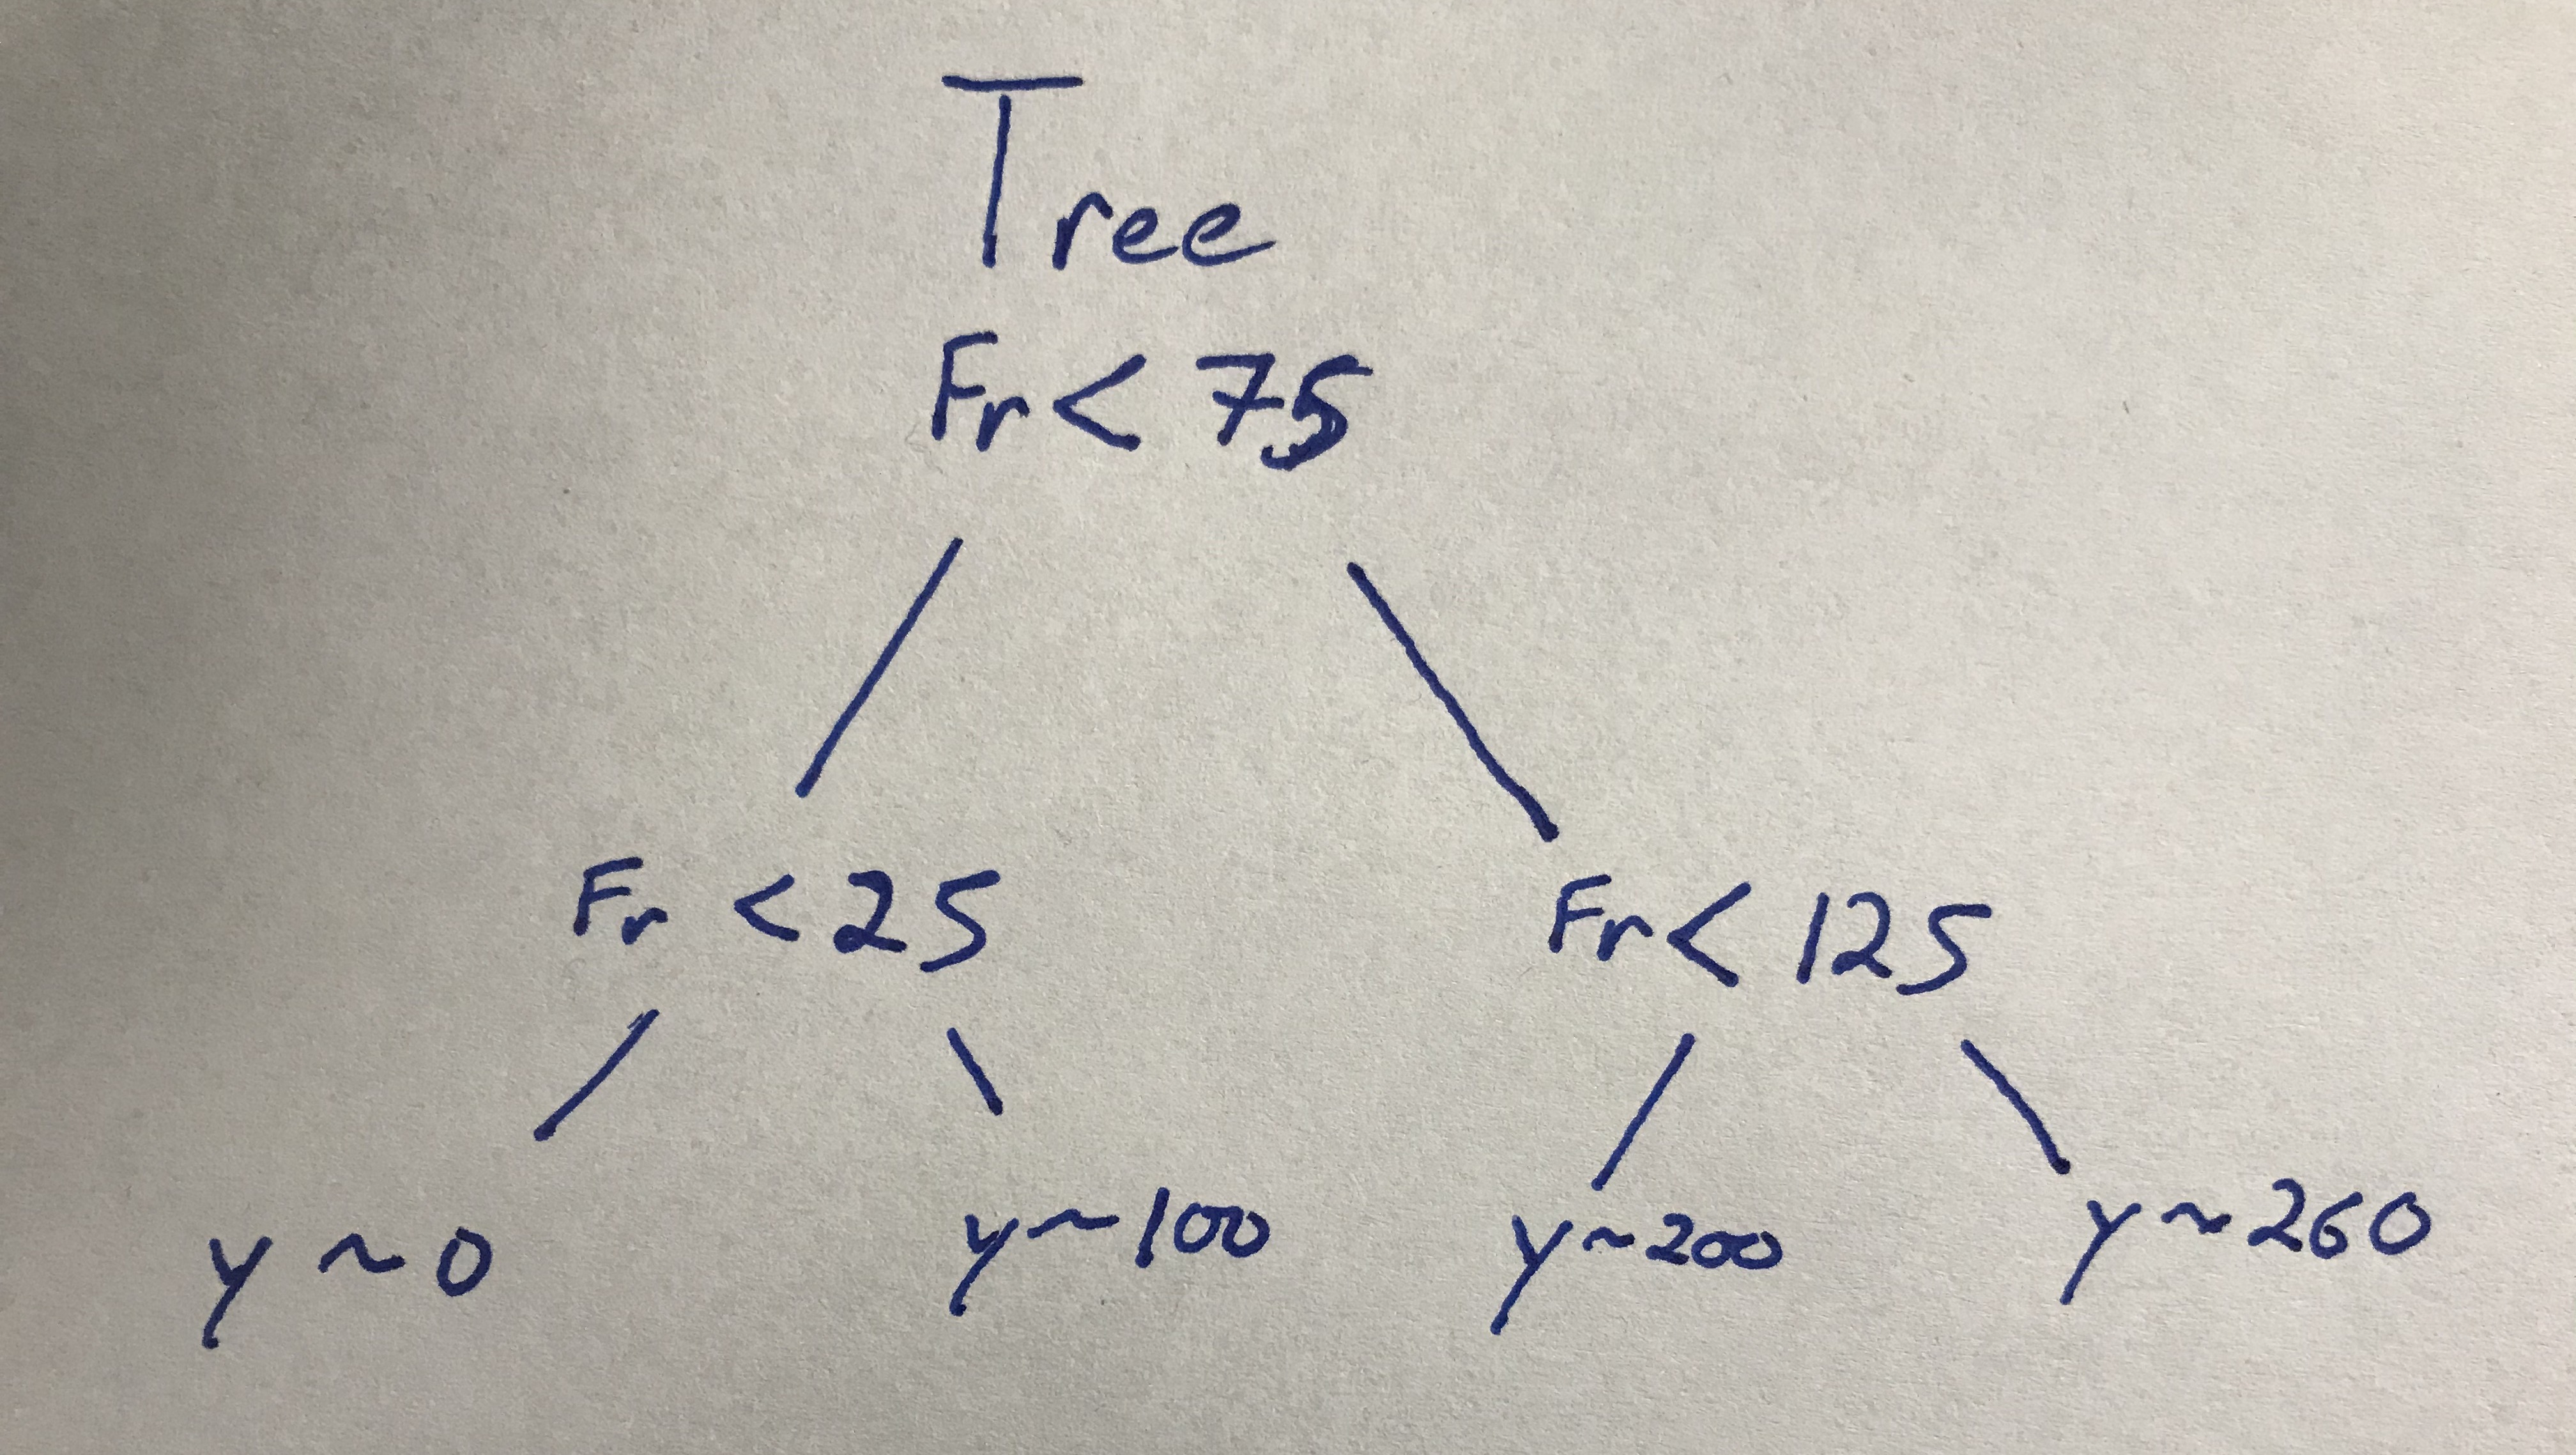 Tree
Fr < 75
Fr < 25
Fr < 125
y ~ 0
y ~ 100
y ~ 200
y ~ 260